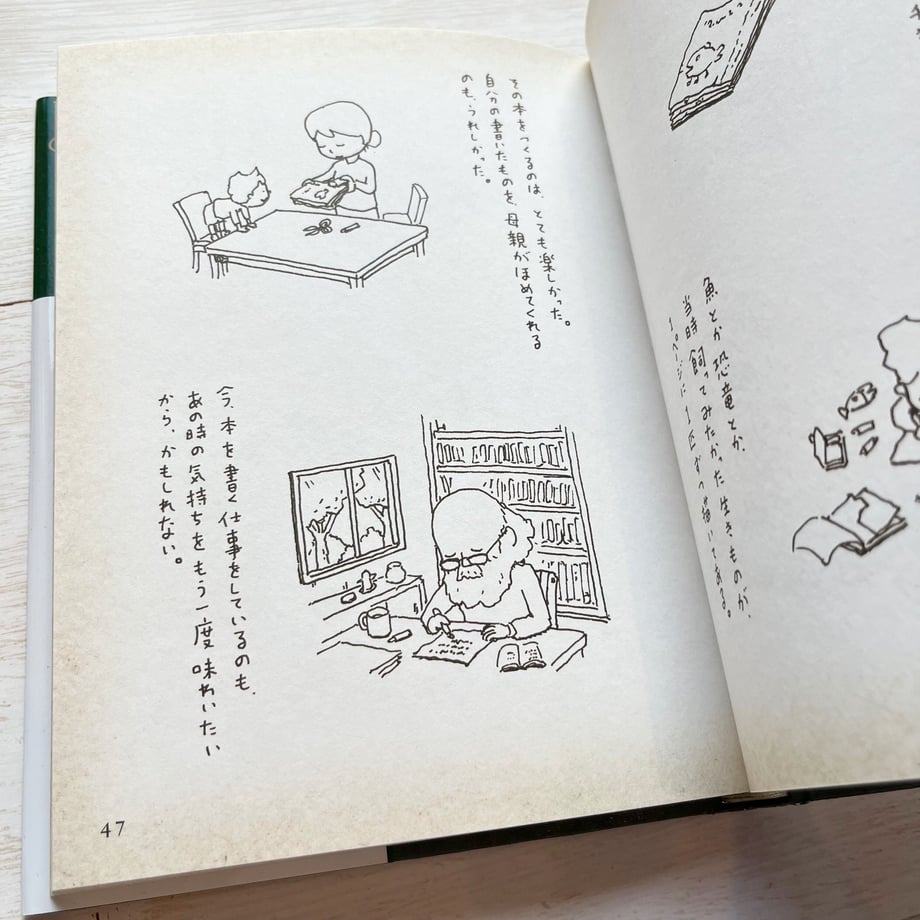 魚とか恐竜とか、
当時飼ってみたかった生きものが、
1ページに1匹ずつ描いてある。
その本をつくるのは、とても楽しかった。
自分の書いたものを、母親がほめてくれる
のも、うれしかった。
今、本を書く仕事をしているのも、
あの時の気持ちをもう一度味わいたい
から、かもしれない。
47